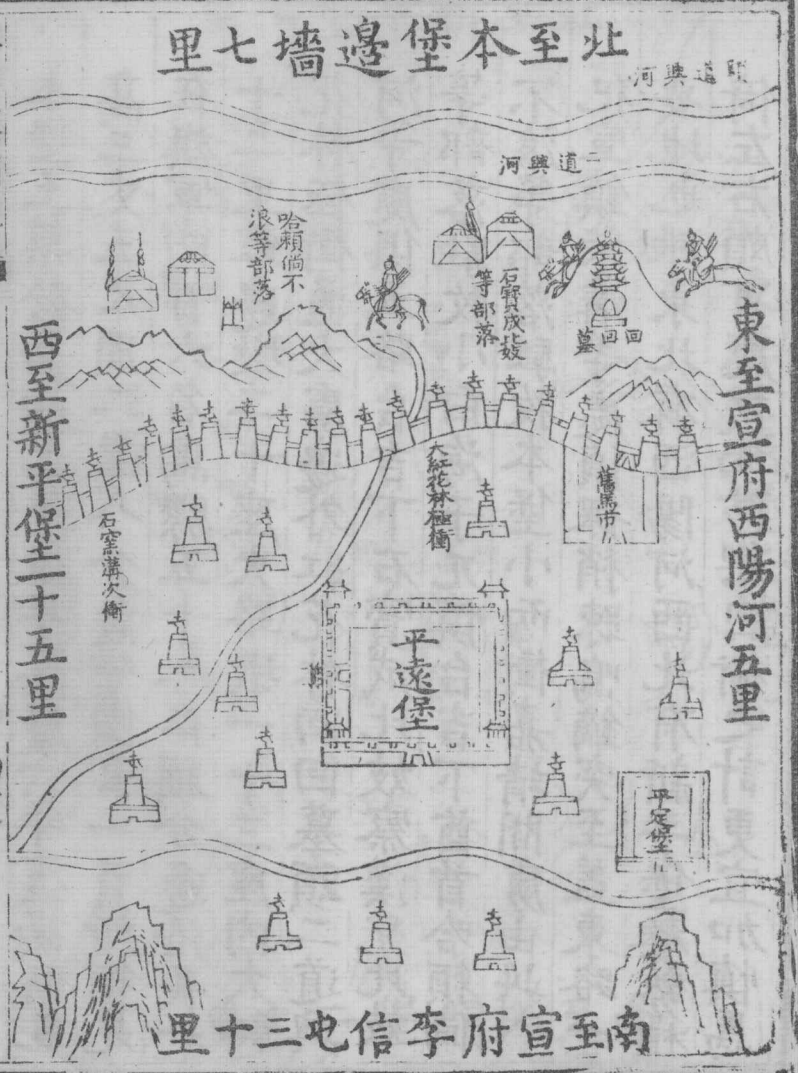 北至本堡邊墻七里
頭道興河
二道興河
哈賴倘不
浪等部落
石寶貝成北妓
等部落
回回墓
東至宣府西陽河五里
西至新平堡二十五里
大紅花林極衝
舊馬市
石窯溝次衝
平遠堡
平定堡
南至宣府李信屯三十里